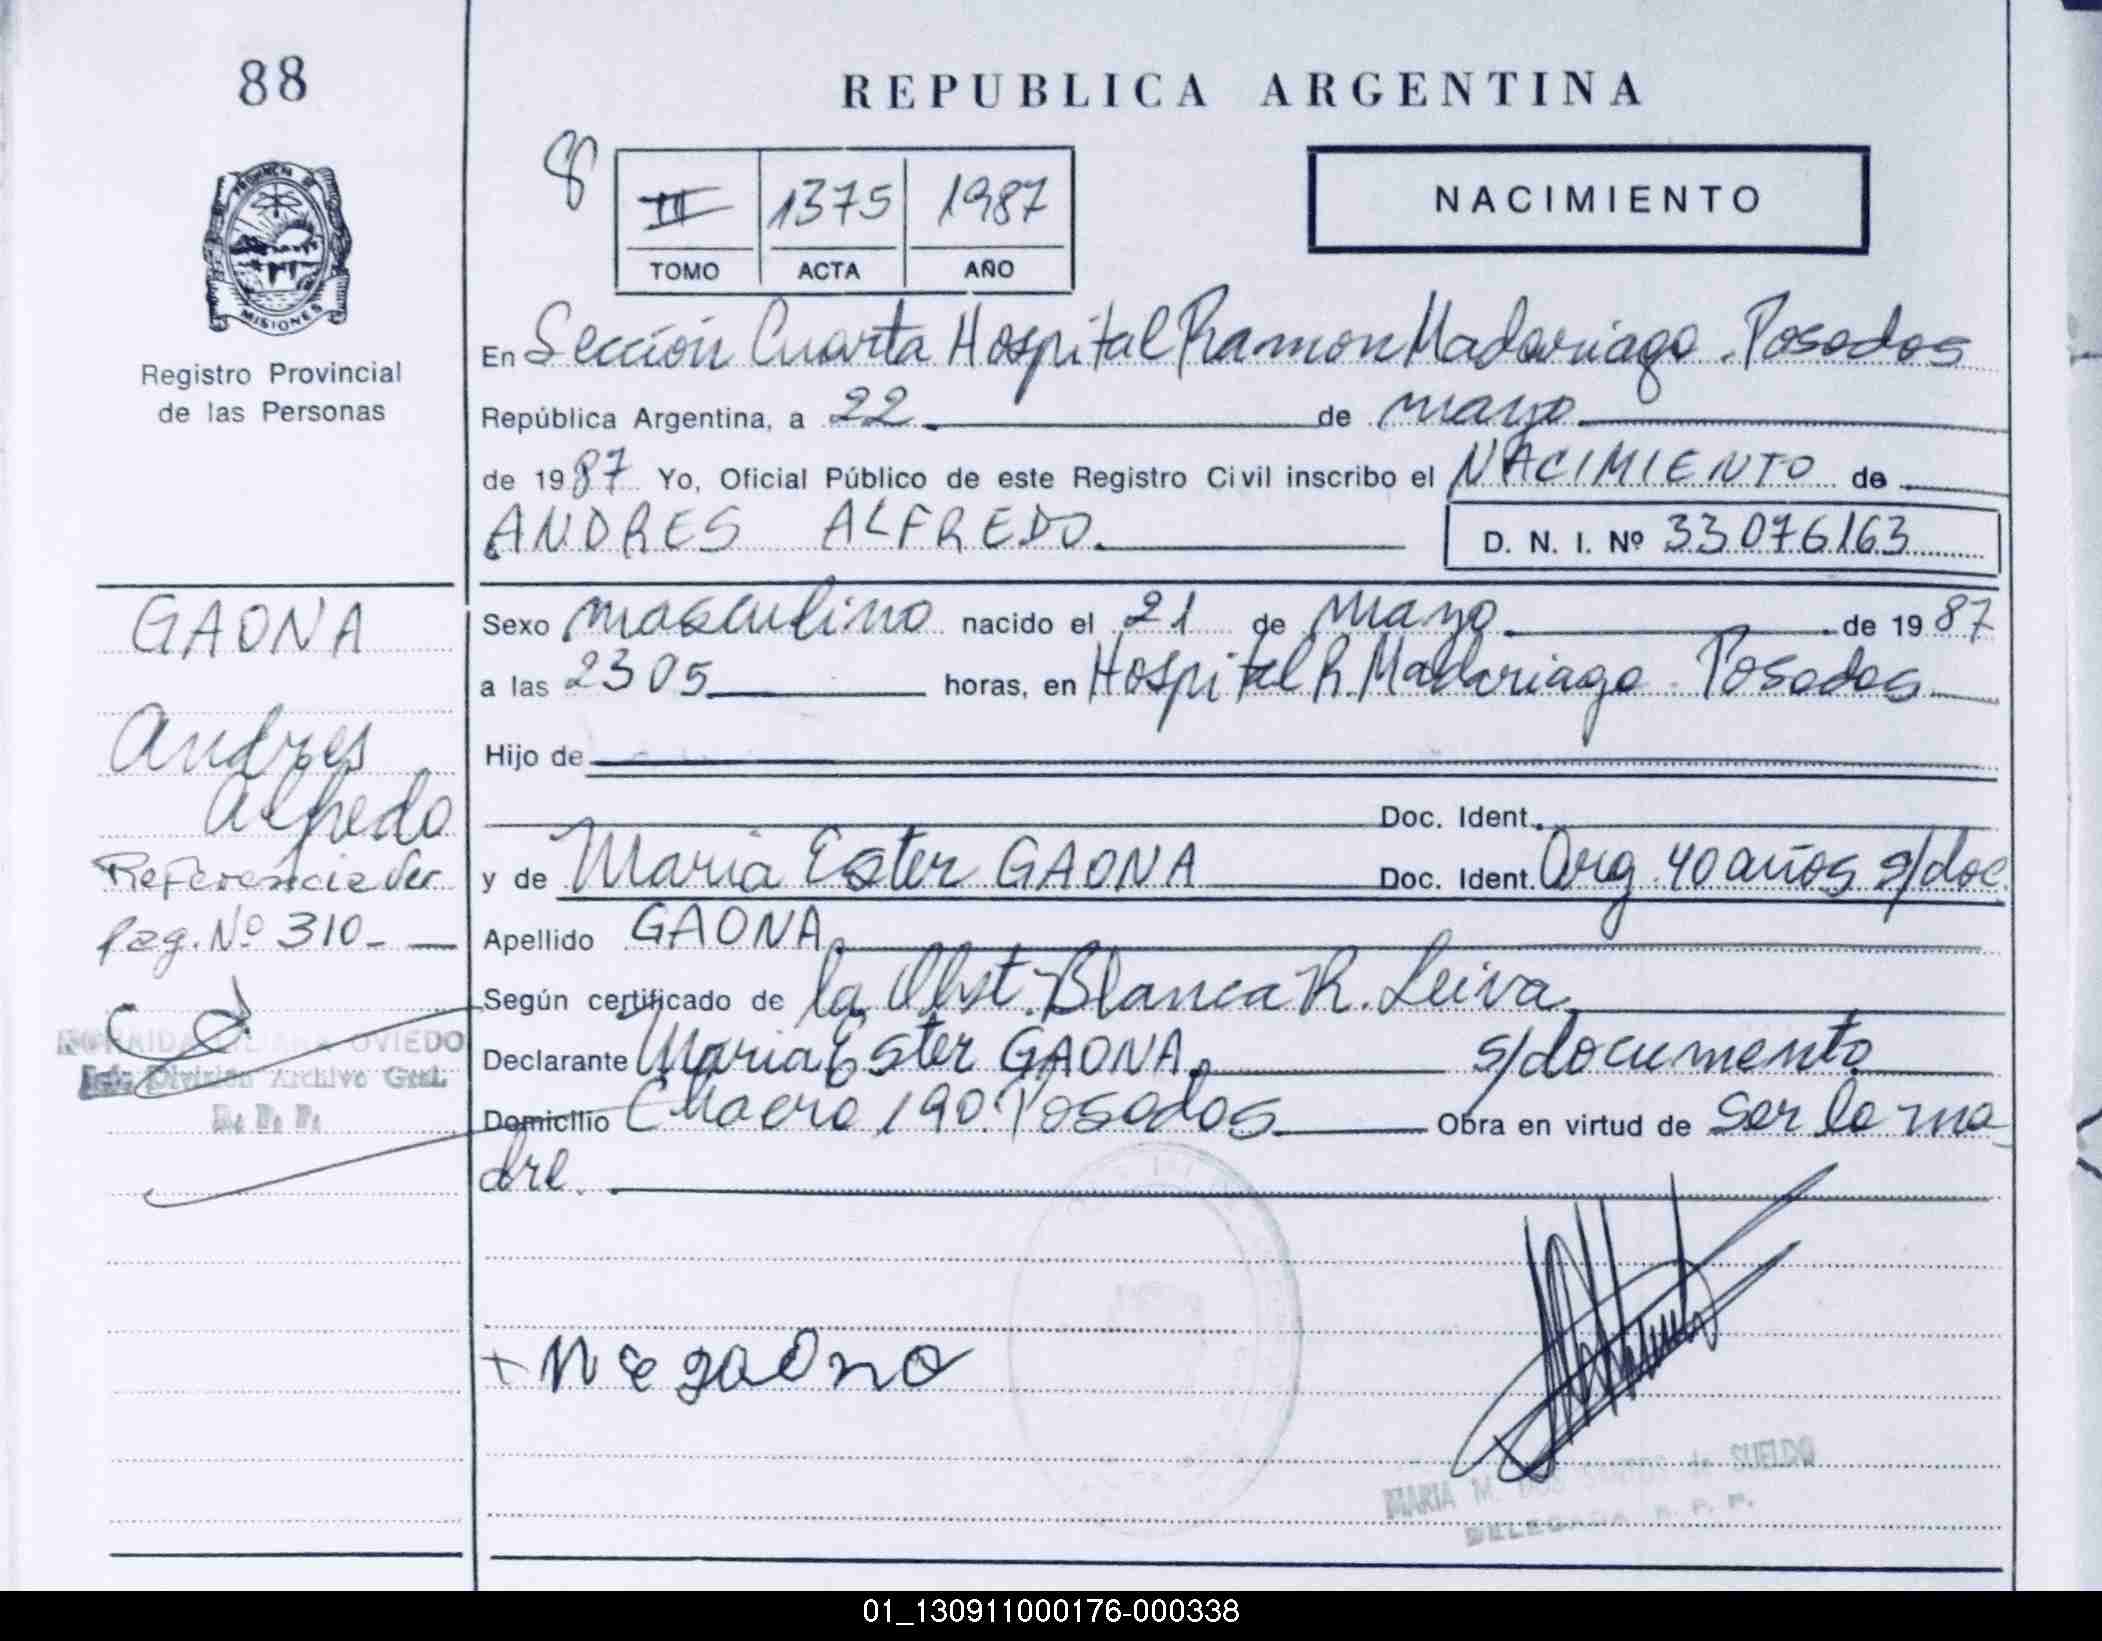 88
REPUBLICA ARGENTINA
PROVINCIA DE
MISIONES
Registro Provincial
de las Personas
8
III 1375 1987
TOMO ACTA AÑO
NACIMIENTO
En Sección Cuarta Hospital Ramon Madariaga. Posadas
República Argentina, a 22 de mayo
de 1987 Yo, Oficial Público de este Registro Civil inscribo el NACIMIENTO de
ANDRES ALFREDO
D. N. I. Nº 33076163
Sexo masculino nacido el 21 de mayo de 1987
a las 2305 horas, en Hospital R. Madariaga. Posadas
Hijo de
Doc. Ident.
y de Maria Ester GAONA Doc. Ident. Arg. 40 años s/doc.
Apellido GAONA
Según certificado de la Obst. Blanca R. Leiva
Declarante Maria Ester GAONA. s/documento
Domicilio Chacra 190. Posadas Obra en virtud de ser la ma-
dre.
GAONA
Andres
Alfredo
Referencia Ver
Pag. Nº 310.-
OVIEDO
División Archivo Gral.
gaona
MARIA M. DOS SANTOS de SUELDO
DELEGADA R. P. P.
01_130911000176-000338